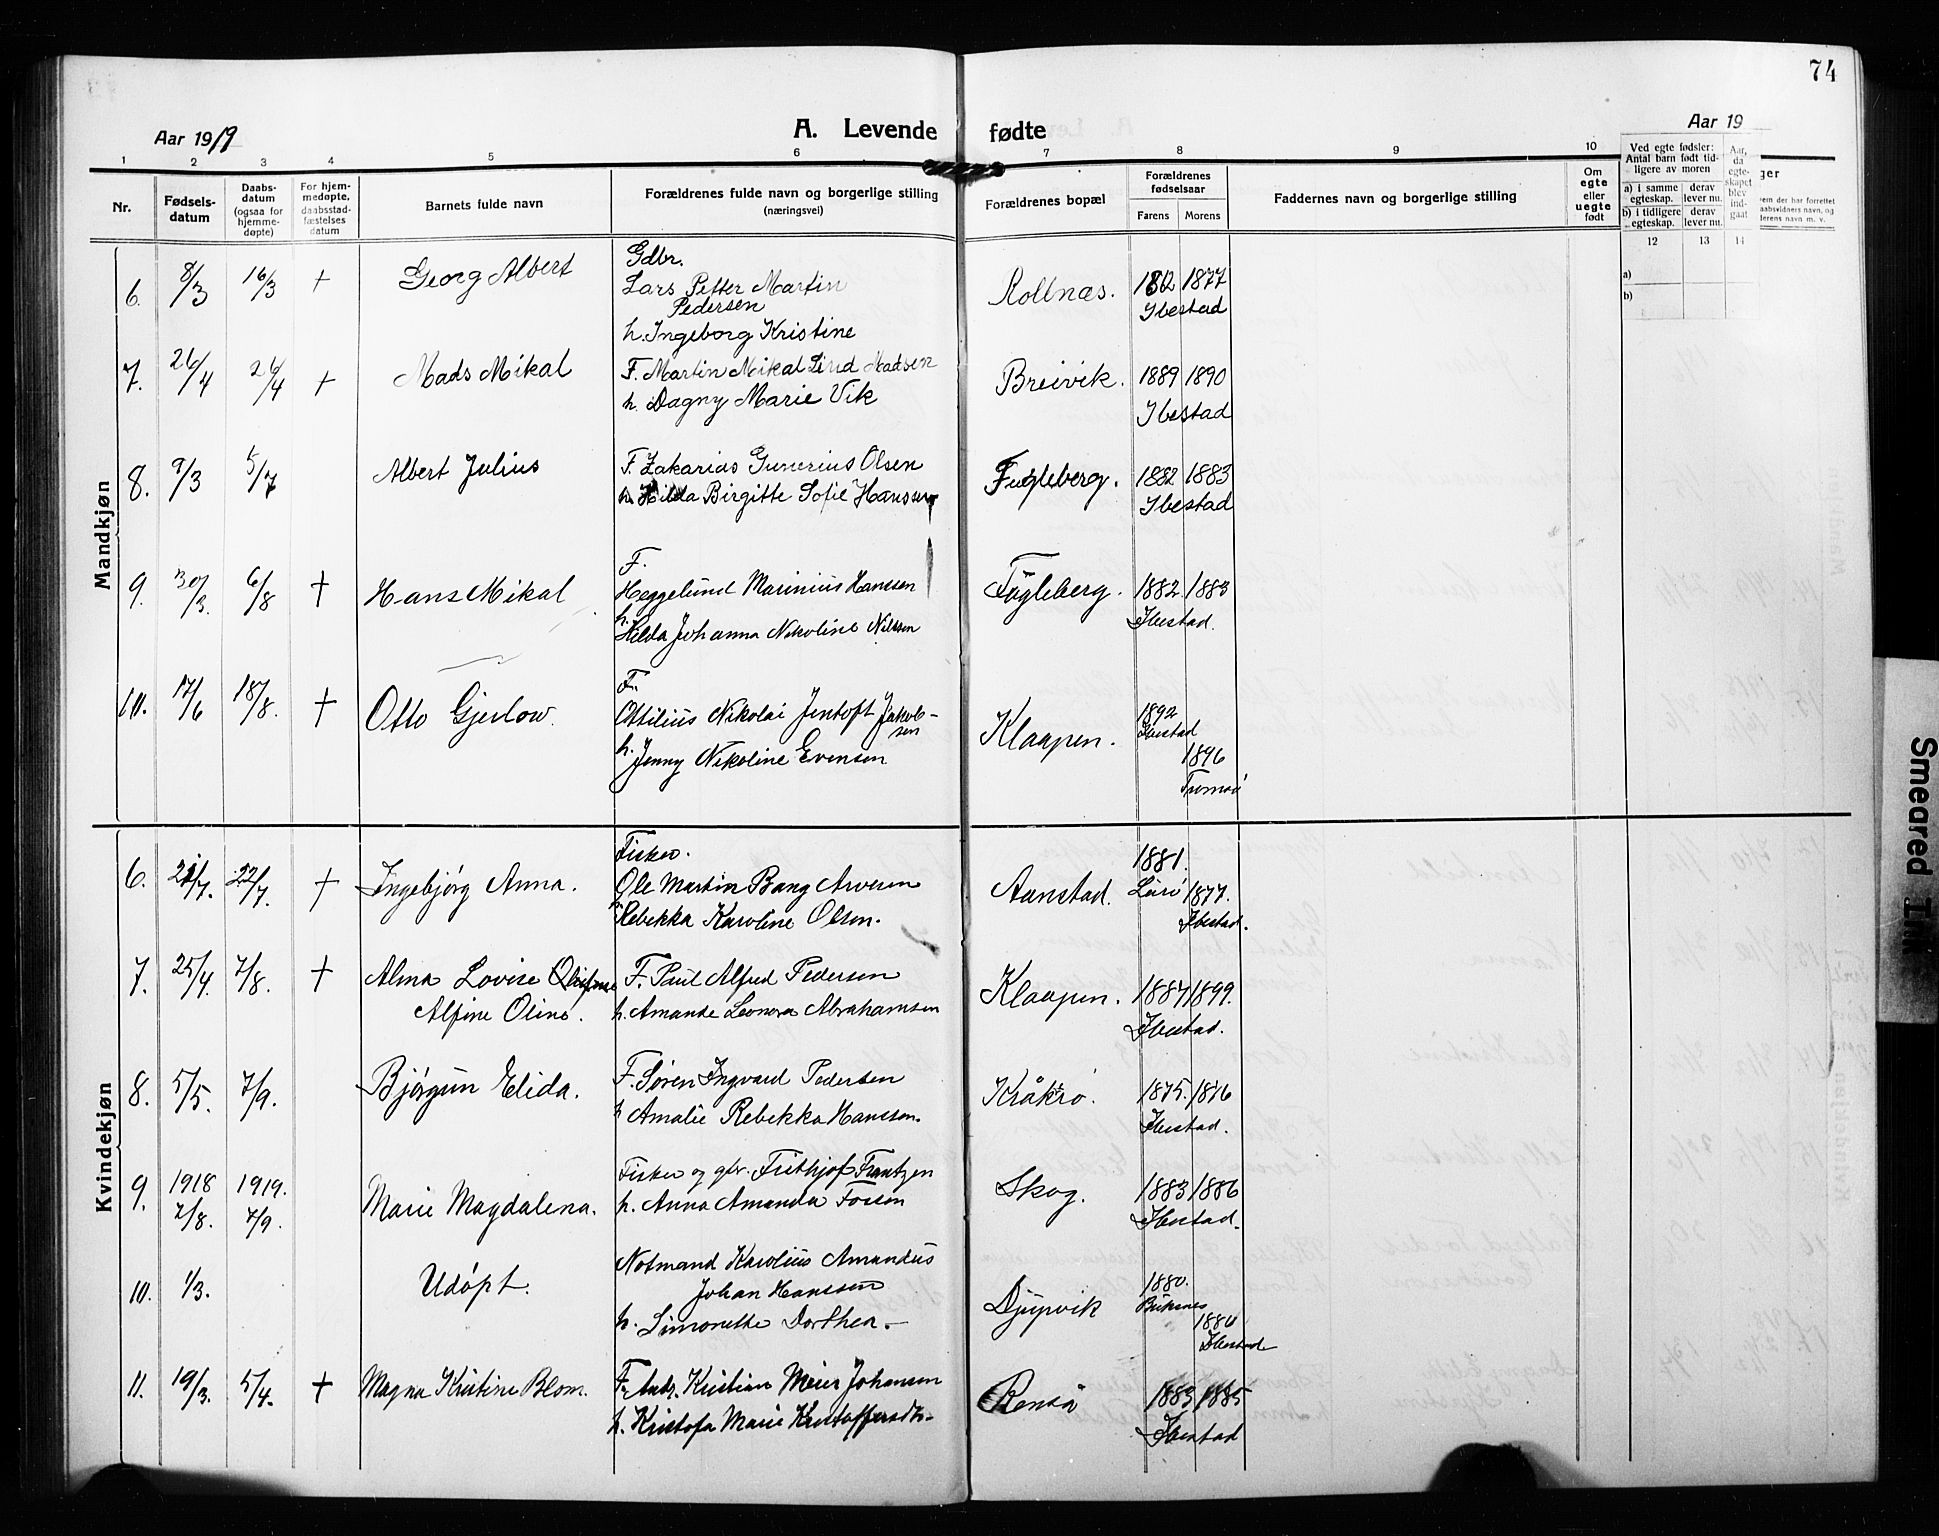 74
Aar 1919
A. Levende fødte
Aar 19
1 2 3 4 5 6 7 8 9 10
Nr.
Fødsels-datum
Daabs-datum (ogsaa for hjemme-døpte)
For hjem-medøpte, daabsstad-fæstelses datum
Barnets fulde navn
Forældrenes fulde navn og borgerlige stilling (næringsvei)
Forældrenes bopæl
Forældrenes fødselsaar
Farens Morens
Faddernes navn og borgerlige stilling
Om egte eller uegte født
Ved egte fødsler: Antal barn født tid-ligere av moren
a) i samme egteskap. derav lever nu.
b) i tidligere egteskap. derav lever nu.
Aar, da egte-skapet blev ind-gaat
12 13 14
a)
b)
Mandkjøn
6. 8/3 16/3 + Georg Albert
Gdbr.
Lars Petter Martin
Pedersen
h. Ingeborg Kristine
Rollnæs. 1877
Ibestad
7. 26/4 26/4 + Mads Mikal
F. Martin Mikal Lind Madsen
h. Dagny Marie Vik
Breivik. 1889 1890
Ibestad
8. 9/3 5/7 Albert Julius
F. Zakarias Gunerius Olsen
h. Hilda Birgitte Sofie Hanssen
Fugleberg. 1882 1883
Ibestad
9. 30/3. 6/8 + Hans Mikal
F.
Heggelund Marinius Hanssen
h.
Hilda Johanna Nikoline Nilssen
Fugleberg. 1882 1883
Ibestad.
10. 17/6 18/8. + Otto Gjerlow.
F.
Ottilius Nikolai Jentoft Jakob-
sen
h. Jenny Nikoline Evensen
Klaapen. 1892
Ibestad
1896
Tromsö
Kvindekjøn
6. 21/7. 22/7. + Ingebjörg Anna.
Fisker.
Ole Martin Bang Arvesen
h. Rebekka Karoline Olsen.
Aanstad. 1881.
1877.
Ibestad.
7. 25/4. 7/8. + Alma Lovise
Alfine Oline.
F. Paul Alfred Pedersen
h. Amanda Leonora Abrahamsen
Klaapen. 1884 1899.
Ibestad.
8. 5/5. 7/9. Bjórgun Elida.
F. Sören Ingvard Pedersen
h Amalie Rebekka Hanssen.
Kråkrö. 1875. 1876
Ibestad.
9. 1918 1919.
7/8. 7/9. Marie Magdalena.
Fisker og gbr. Frithjof Frantzen
h. Anna Amanda Fossen
Skog. 1883 1886
Ibestad.
10. 1/3. Udöpt.
Notmand Karolius Amandus
Johan Hanssen
h. Simonette Dorthea.
Djupvik 1880.
Buksnes
1884
Ibestad
11. 19/3. 5/4. + Magna Kristine Blom.
F. Andr. Kristian Meier Johansen
h. Kristofa Marie Kristoffersdtr.
Renså 1883 1885
Ibestad
Smeared Ink